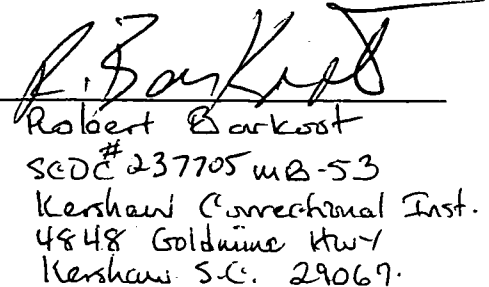 R. Barkoot
Robert Barkoot
SCDC# 237705 MB-53
Kershaw Correctional Inst.
4848 Goldmine Hwy
Kershaw S.C. 29067.